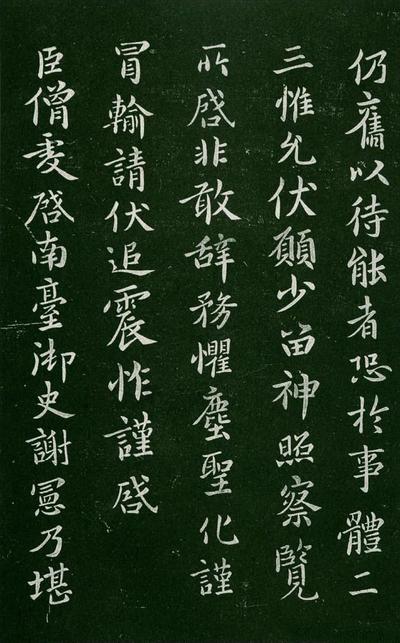 仍舊以待能者恐扵事體二
三惟允伏願少留神照察覽
所啓非敢辞務懼塵聖化謹
冒輸請伏追震怍謹啓
臣僧虔啓南臺御史謝憲乃堪